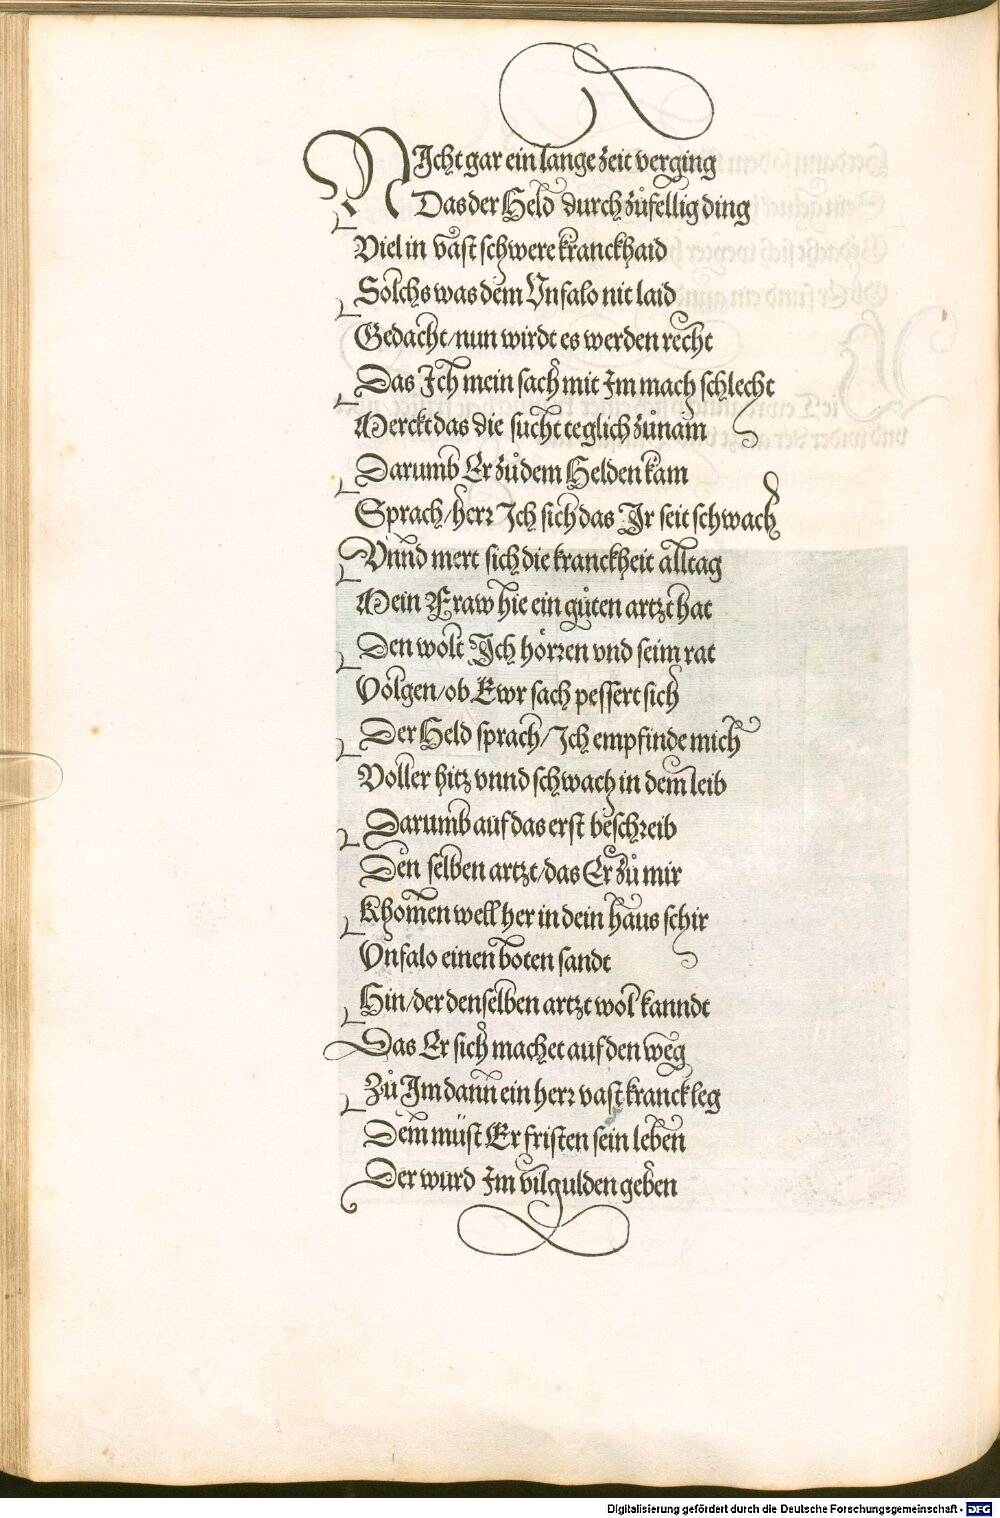 NIcht gar ein lange zeit verging
Das der Held durch zůfellig ding
Viel in vast schwere kranckhaid
Solchs was dem Vnfalo nit laid
Gedacht/nun wirdt es werden recht
Das Ich mein sach mit Im mach schlecht
Merckt das die sucht teglich zůnam
Darumb Er zů dem Helden kam
Sprach/herr Ich sich das Ir seit schwach
Vnnd mert sich die kranckheit alltag
Mein Fraw hie ein gůten artzt hat
Den wolt Ich hörren vnd seim rat
Volgen/ob Ewr sach pessert sich
Der Held sprach/Ich empfinde mich
Voller hitz vnnd schwach in dem leib
Darumb auf das erst beschreib
Den selben artzt/das Er zů mir
Khomen well her in dein haus schir
Vnfalo einen boten sandt
Hin/der denselben artzt wol kanndt
Das Er sich machet auf den weg
Zů Im dann ein herr vast kranck leg
Dem müst Er fristen sein leben
Der wurd Im vil gulden geben
Digitalisierung gefördert durch die Deutsche Forschungsgemeinschaft - DFG